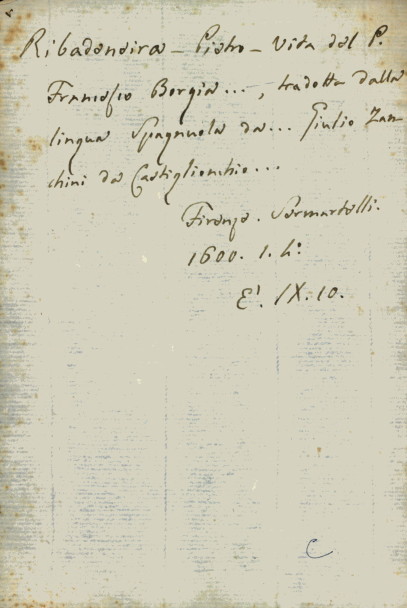 Ribadeneira - Pietro - Vita del P.
Francesco Borgia..., tradotta dalla
lingua Spagnuola da... Giulio Zan-
chini da Castiglionchio...
Firenze. Sermartelli.
1600. 1. 4º
E'. IX. 10.
C